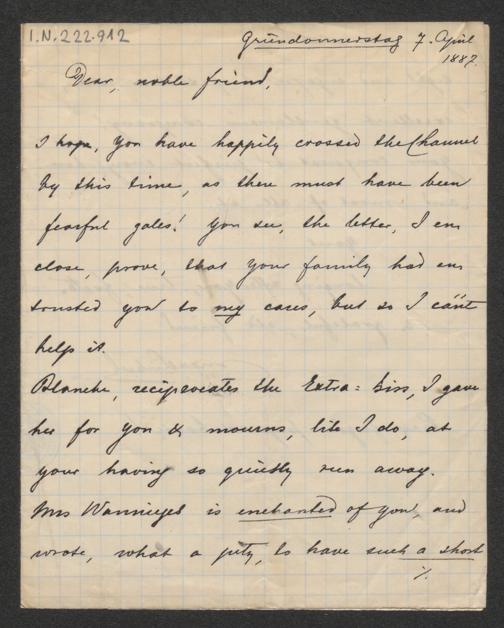 I.N. 222.912
Gründonnerstag 7. April
1887.
Dear, noble friend,
I hope, you have happily crossed the Channel
by this time, as there must have been
fearful gales! You see, the letter, I en
close, prove, that your family had en
trusted you to my cares, but so I can't
help it.
Blanche, reciprocates the Extra-kiss, I gave
her for you & mourns, like I do, at
your having so quietly run away.
Mrs is enchanted of you, and
wrote, what a pity, to have such a short
%